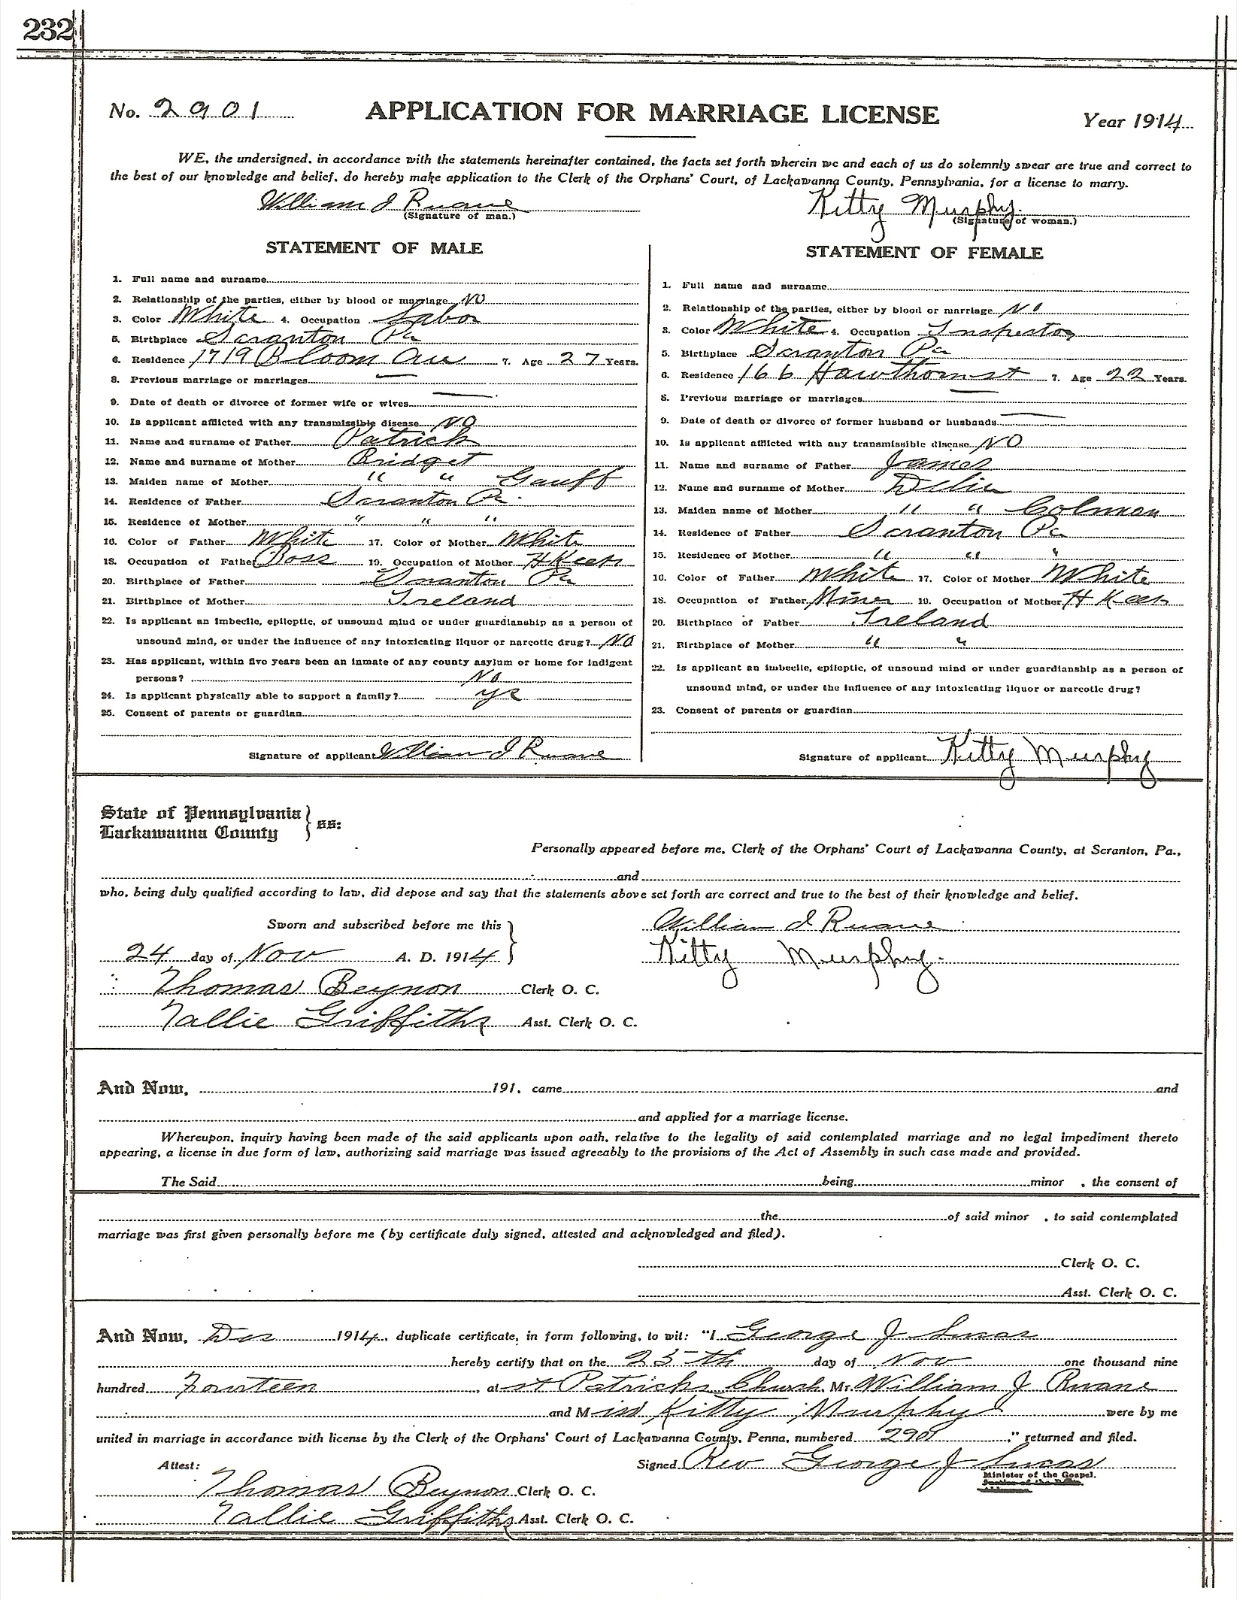 232
No. 2901 APPLICATION FOR MARRIAGE LICENSE Year 1914
WE, the undersigned, in accordance with the statements hereinafter contained, the facts set forth wherein we and each of us do solemnly swear are true and correct to
the best of our knowledge and belief, do hereby make application to the Clerk of the Orphans' Court, of Lackawanna County, Pennsylvania, for a license to marry.
William J Ruane Kitty Murphy.
(Signature of man.) (Signature of woman.)
STATEMENT OF MALE
1. Full name and surname
2. Relationship of the parties, either by blood or marriage NO
3. Color White 4. Occupation Labor
5. Birthplace Scranton Pa
6. Residence 1719 Bloom Ave 7. Age 27 Years.
8. Previous marriage or marriages —
9. Date of death or divorce of former wife or wives —
10. Is applicant afflicted with any transmissible disease NO
11. Name and surname of Father Patrick
12. Name and surname of Mother Bridget
13. Maiden name of Mother " " Gauff
14. Residence of Father Scranton Pa.
15. Residence of Mother " " "
16. Color of Father White 17. Color of Mother White
18. Occupation of Father Boss 19. Occupation of Mother H Keep
20. Birthplace of Father Scranton Pa
21. Birthplace of Mother Ireland
22. Is applicant an imbecile, epileptic, of unsound mind or under guardianship as a person of
unsound mind, or under the influence of any intoxicating liquor or narcotic drug? NO
23. Has applicant, within five years been an inmate of any county asylum or home for indigent
persons? No
24. Is applicant physically able to support a family? yes
25. Consent of parents or guardian
Signature of applicant William J Ruane
STATEMENT OF FEMALE
1. Full name and surname
2. Relationship of the parties, either by blood or marriage NO
3. Color White 4. Occupation Inspector
5. Birthplace Scranton Pa
6. Residence 166 Hawthorn st 7. Age 22 Years.
8. Previous marriage or marriages —
9. Date of death or divorce of former husband or husbands —
10. Is applicant afflicted with any transmissible disease NO
11. Name and surname of Father James
12. Name and surname of Mother Delia
13. Maiden name of Mother " " Colman
14. Residence of Father Scranton Pa
15. Residence of Mother " " "
16. Color of Father White 17. Color of Mother White
18. Occupation of Father Miner 19. Occupation of Mother H Keep
20. Birthplace of Father Ireland
21. Birthplace of Mother " "
22. Is applicant an imbecile, epileptic, of unsound mind or under guardianship as a person of
unsound mind, or under the influence of any intoxicating liquor or narcotic drug?
23. Consent of parents or guardian
Signature of applicant Kitty Murphy
State of Pennsylvania
Lackawanna County } ss:
Personally appeared before me, Clerk of the Orphans' Court of Lackawanna County, at Scranton, Pa.,
and
who, being duly qualified according to law, did depose and say that the statements above set forth are correct and true to the best of their knowledge and belief.
Sworn and subscribed before me this William J Ruane
24 day of Nov A. D. 1914 Kitty Murphy.
Thomas Beynon Clerk O. C.
Tallie Griffiths Asst. Clerk O. C.
And Now, 191, came and
and applied for a marriage license.
Whereupon, inquiry having been made of the said applicants upon oath, relative to the legality of said contemplated marriage and no legal impediment thereto
appearing, a license in due form of law, authorizing said marriage was issued agreeably to the provisions of the Act of Assembly in such case made and provided.
The Said being minor , the consent of
the of said minor , to said contemplated
marriage was first given personally before me (by certificate duly signed, attested and acknowledged and filed).
Clerk O. C.
Asst. Clerk O. C.
And Now, Dec 1914, duplicate certificate, in form following, to wit: "I George J Lucas
hereby certify that on the 25th day of Nov one thousand nine
hundred Fourteen at St Patricks Church Mr William J Ruane
and Miss Kitty Murphy were by me
united in marriage in accordance with license by the Clerk of the Orphans' Court of Lackawanna County, Penna, numbered 2901 ," returned and filed.
Attest: Signed Rev George J Lucas
Minister of the Gospel.
Thomas Beynon Clerk O. C.
Tallie Griffiths Asst. Clerk O. C.